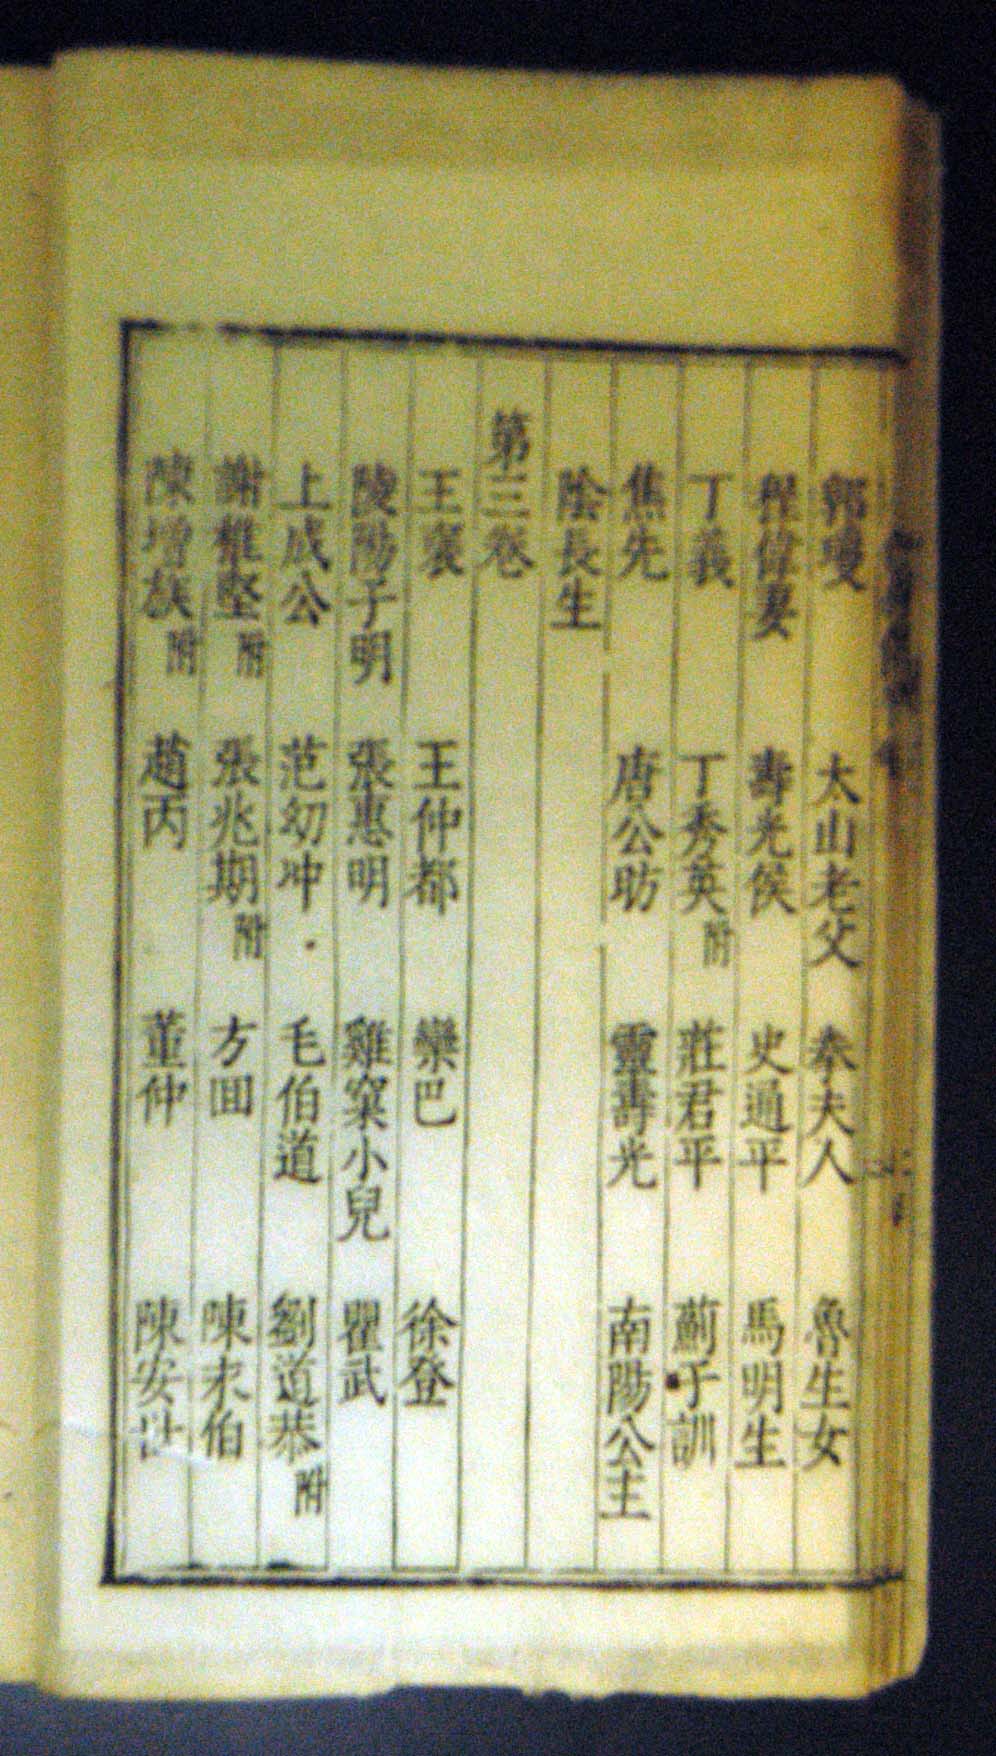 郭瓊 太山老父 奉夫人 魯生女
程偉妻 壽光侯 史通平 馬明生
丁義 丁秀英附 莊君平 薊子訓
焦先 唐公昉 靈壽光 南陽公主
陰長生
第三卷
王褒 王仲都 欒巴 徐登
陵陽子明 張惠明 雞窠小兒 瞿武
上成公 范幼冲 毛伯道 劉道恭附
謝稚堅附 張兆期附 方回 陳永伯
陳增族附 趙丙 董仲 陳安世